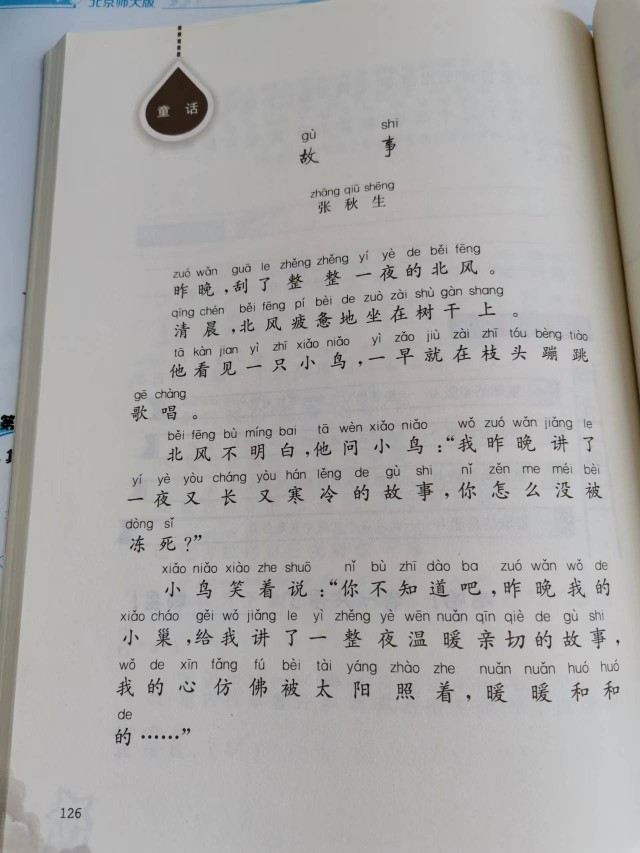 北京师大版
童 话
gù shi
故 事
zhāng qiū shēng
张 秋 生
zuó wǎn guā le zhěng zhěng yí yè de běi fēng
昨 晚 ,刮 了 整 整 一 夜 的 北 风 。
qīng chén běi fēng pí bèi de zuò zài shù gàn shang
清 晨 ,北 风 疲 惫 地 坐 在 树 干 上 。
tā kàn jian yì zhī xiǎo niǎo yì zǎo jiù zài zhī tóu bèng tiào
他 看 见 一 只 小 鸟 ,一 早 就 在 枝 头 蹦 跳
gē chàng
歌 唱 。
běi fēng bù míng bai tā wèn xiǎo niǎo wǒ zuó wǎn jiǎng le
北 风 不 明 白 ,他 问 小 鸟 :“我 昨 晚 讲 了
yí yè yòu cháng yòu hán lěng de gù shi nǐ zěn me méi bèi
一 夜 又 长 又 寒 冷 的 故 事 ,你 怎 么 没 被
dòng sǐ
冻 死 ?”
xiǎo niǎo xiào zhe shuō nǐ bù zhī dào ba zuó wǎn wǒ de
小 鸟 笑 着 说 :“你 不 知 道 吧 ,昨 晚 我 的
xiǎo cháo gěi wǒ jiǎng le yì zhěng yè wēn nuǎn qīn qiè de gù shi
小 巢 ,给 我 讲 了 一 整 夜 温 暖 亲 切 的 故 事 ,
wǒ de xīn fǎng fú bèi tài yáng zhào zhe nuǎn nuǎn huó huó
我 的 心 仿 佛 被 太 阳 照 着 ,暖 暖 和 和
de
的 ……”
126